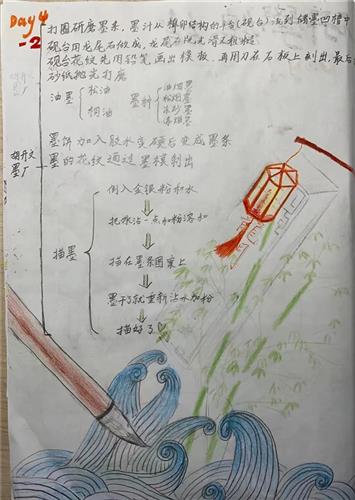 Day 4
-2
打圈研磨墨条，墨汁从榫卯结构的平台(砚台)流到储墨凹槽中
砚台用龙尾石做成，龙尾石
砚台花纹先用铅笔画出模板，再用刀在石板上刻出，最后
砂纸抛光打磨
油墨
松油
桐油
墨料
油烟墨
松烟墨
朱砂墨
墨饼加入胶水变硬后变成墨条
胡开文
墨厂
墨的花纹通过墨模刻出
描墨
倒入金银粉和水
把水沾一点加粉溶和
描在墨条图案上
墨干了就重新沾水加粉
描好了